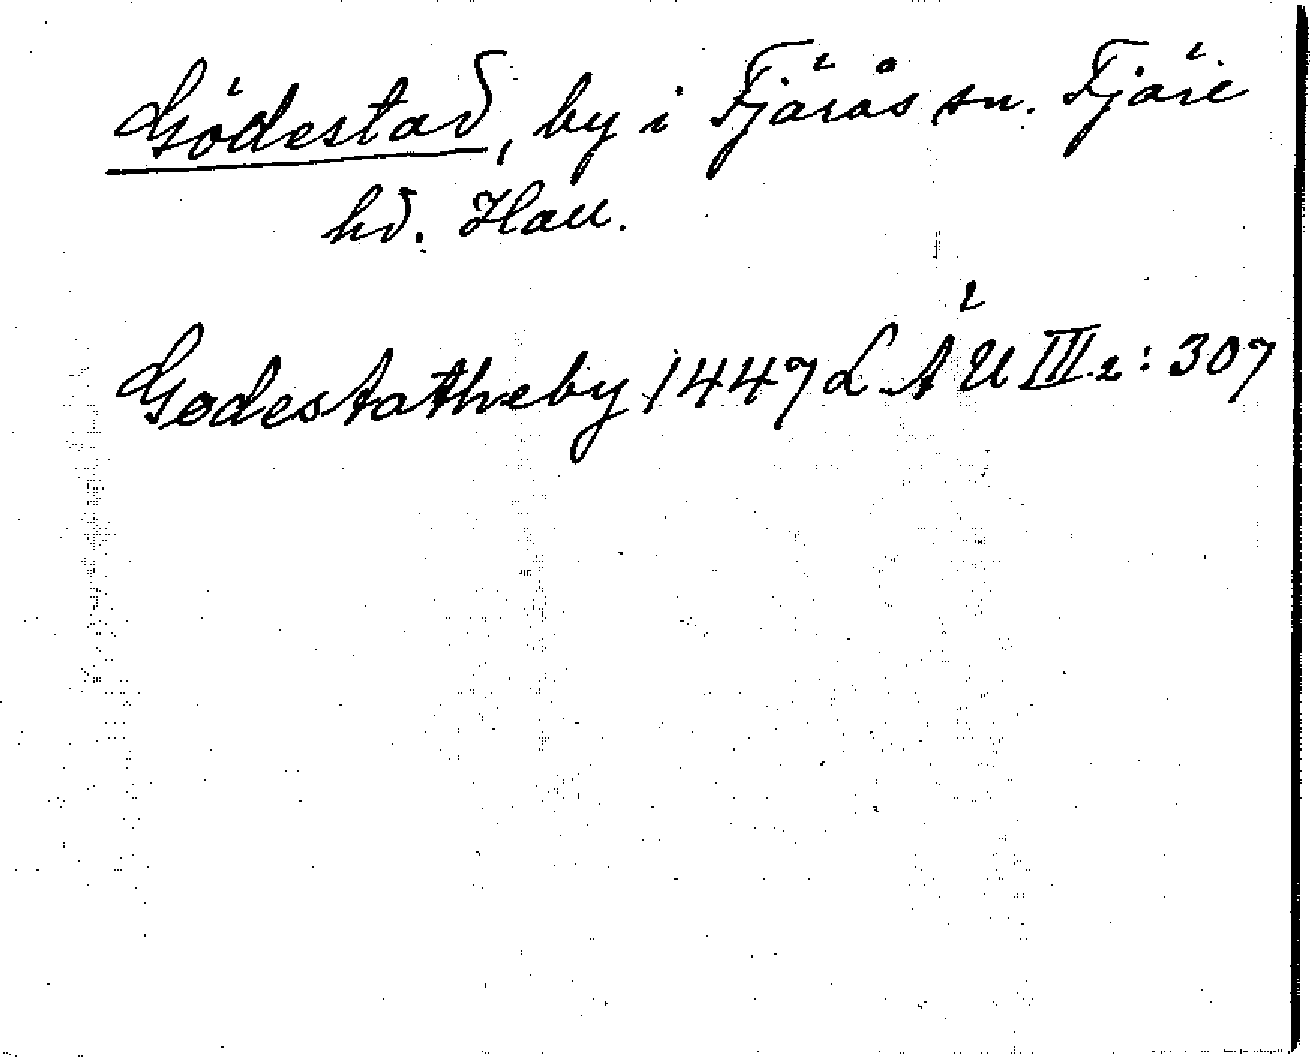 Gödestad, by i Fjärås sn. Fjäre
hd. Hall.
Godestatheby 1447 LÄU III 2: 307